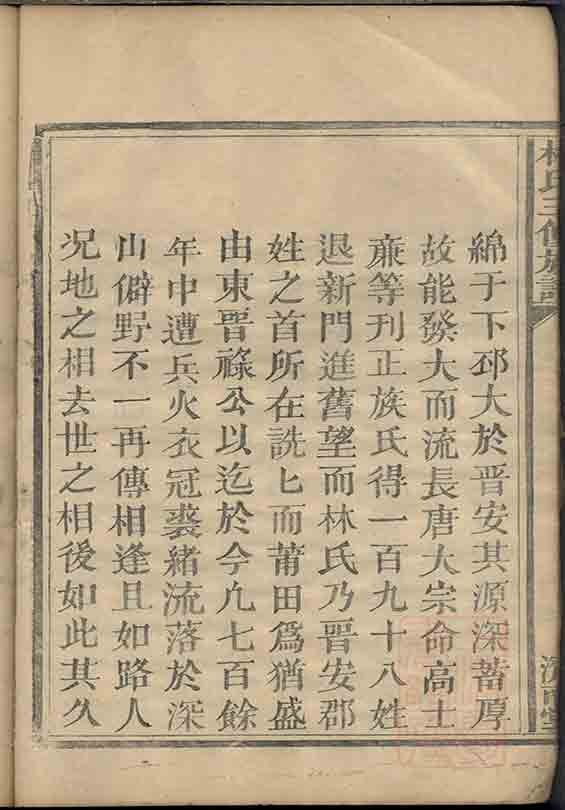 林氏三修族譜
綿于下邳大於晋安其源深蓄厚
故能發大而流長唐大宗命高士
亷等刊正族氏得一百九十八姓
退新門進舊望而林氏乃晋安郡
姓之首所在詵匕而莆田爲猶盛
由東晋祿公以迄於今凢七百餘
年中遭兵火衣冠裘緒流落於深
山僻野不一再傳相逢且如路人
况地之相去世之相後如此其久